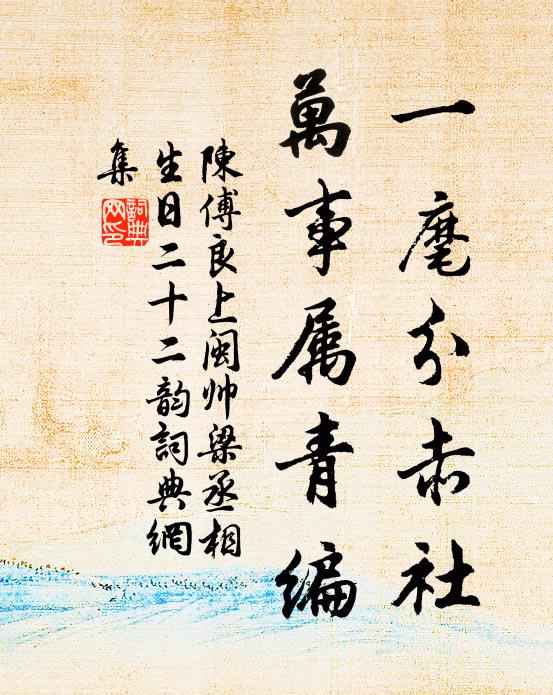 一麾分赤社
萬事属青编
陳傅良上闽帅梁丞相
生日二十二韵詞典網
集
詞典
网印